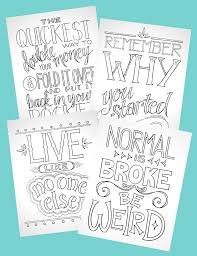 THE
QUICKEST
WAY TO
double your money
IS
FOLD IT OVER
AND put it
back in your
REMEMBER
WHY
you started
LIVE
LIKE
no one
else
NORMAL
IS
BROKE
BE
WEIRD